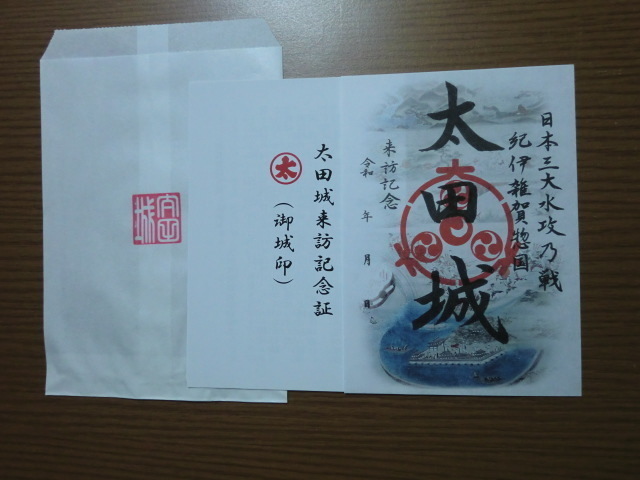 日本三大水攻乃戦
紀伊雑賀惣国
太田城
来訪記念
令和 年 月 日
太田城来訪記念証
(御城印)
太